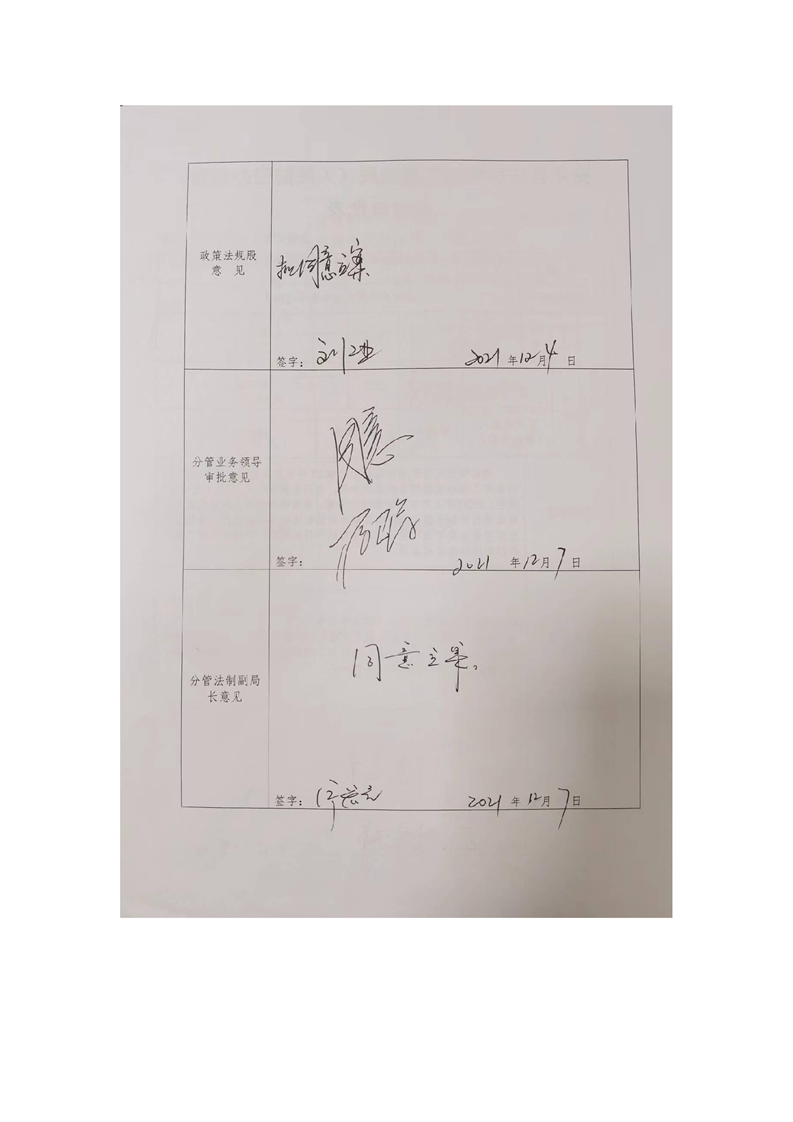 政策法规股
意 见
拟同意立案
签字：
2021 年 12 月 4 日
分管业务领导
审批意见
同意
签字：
2021 年 12 月 7 日
分管法制副局
长意见
同意立案。
签字：
2021 年 12 月 7 日